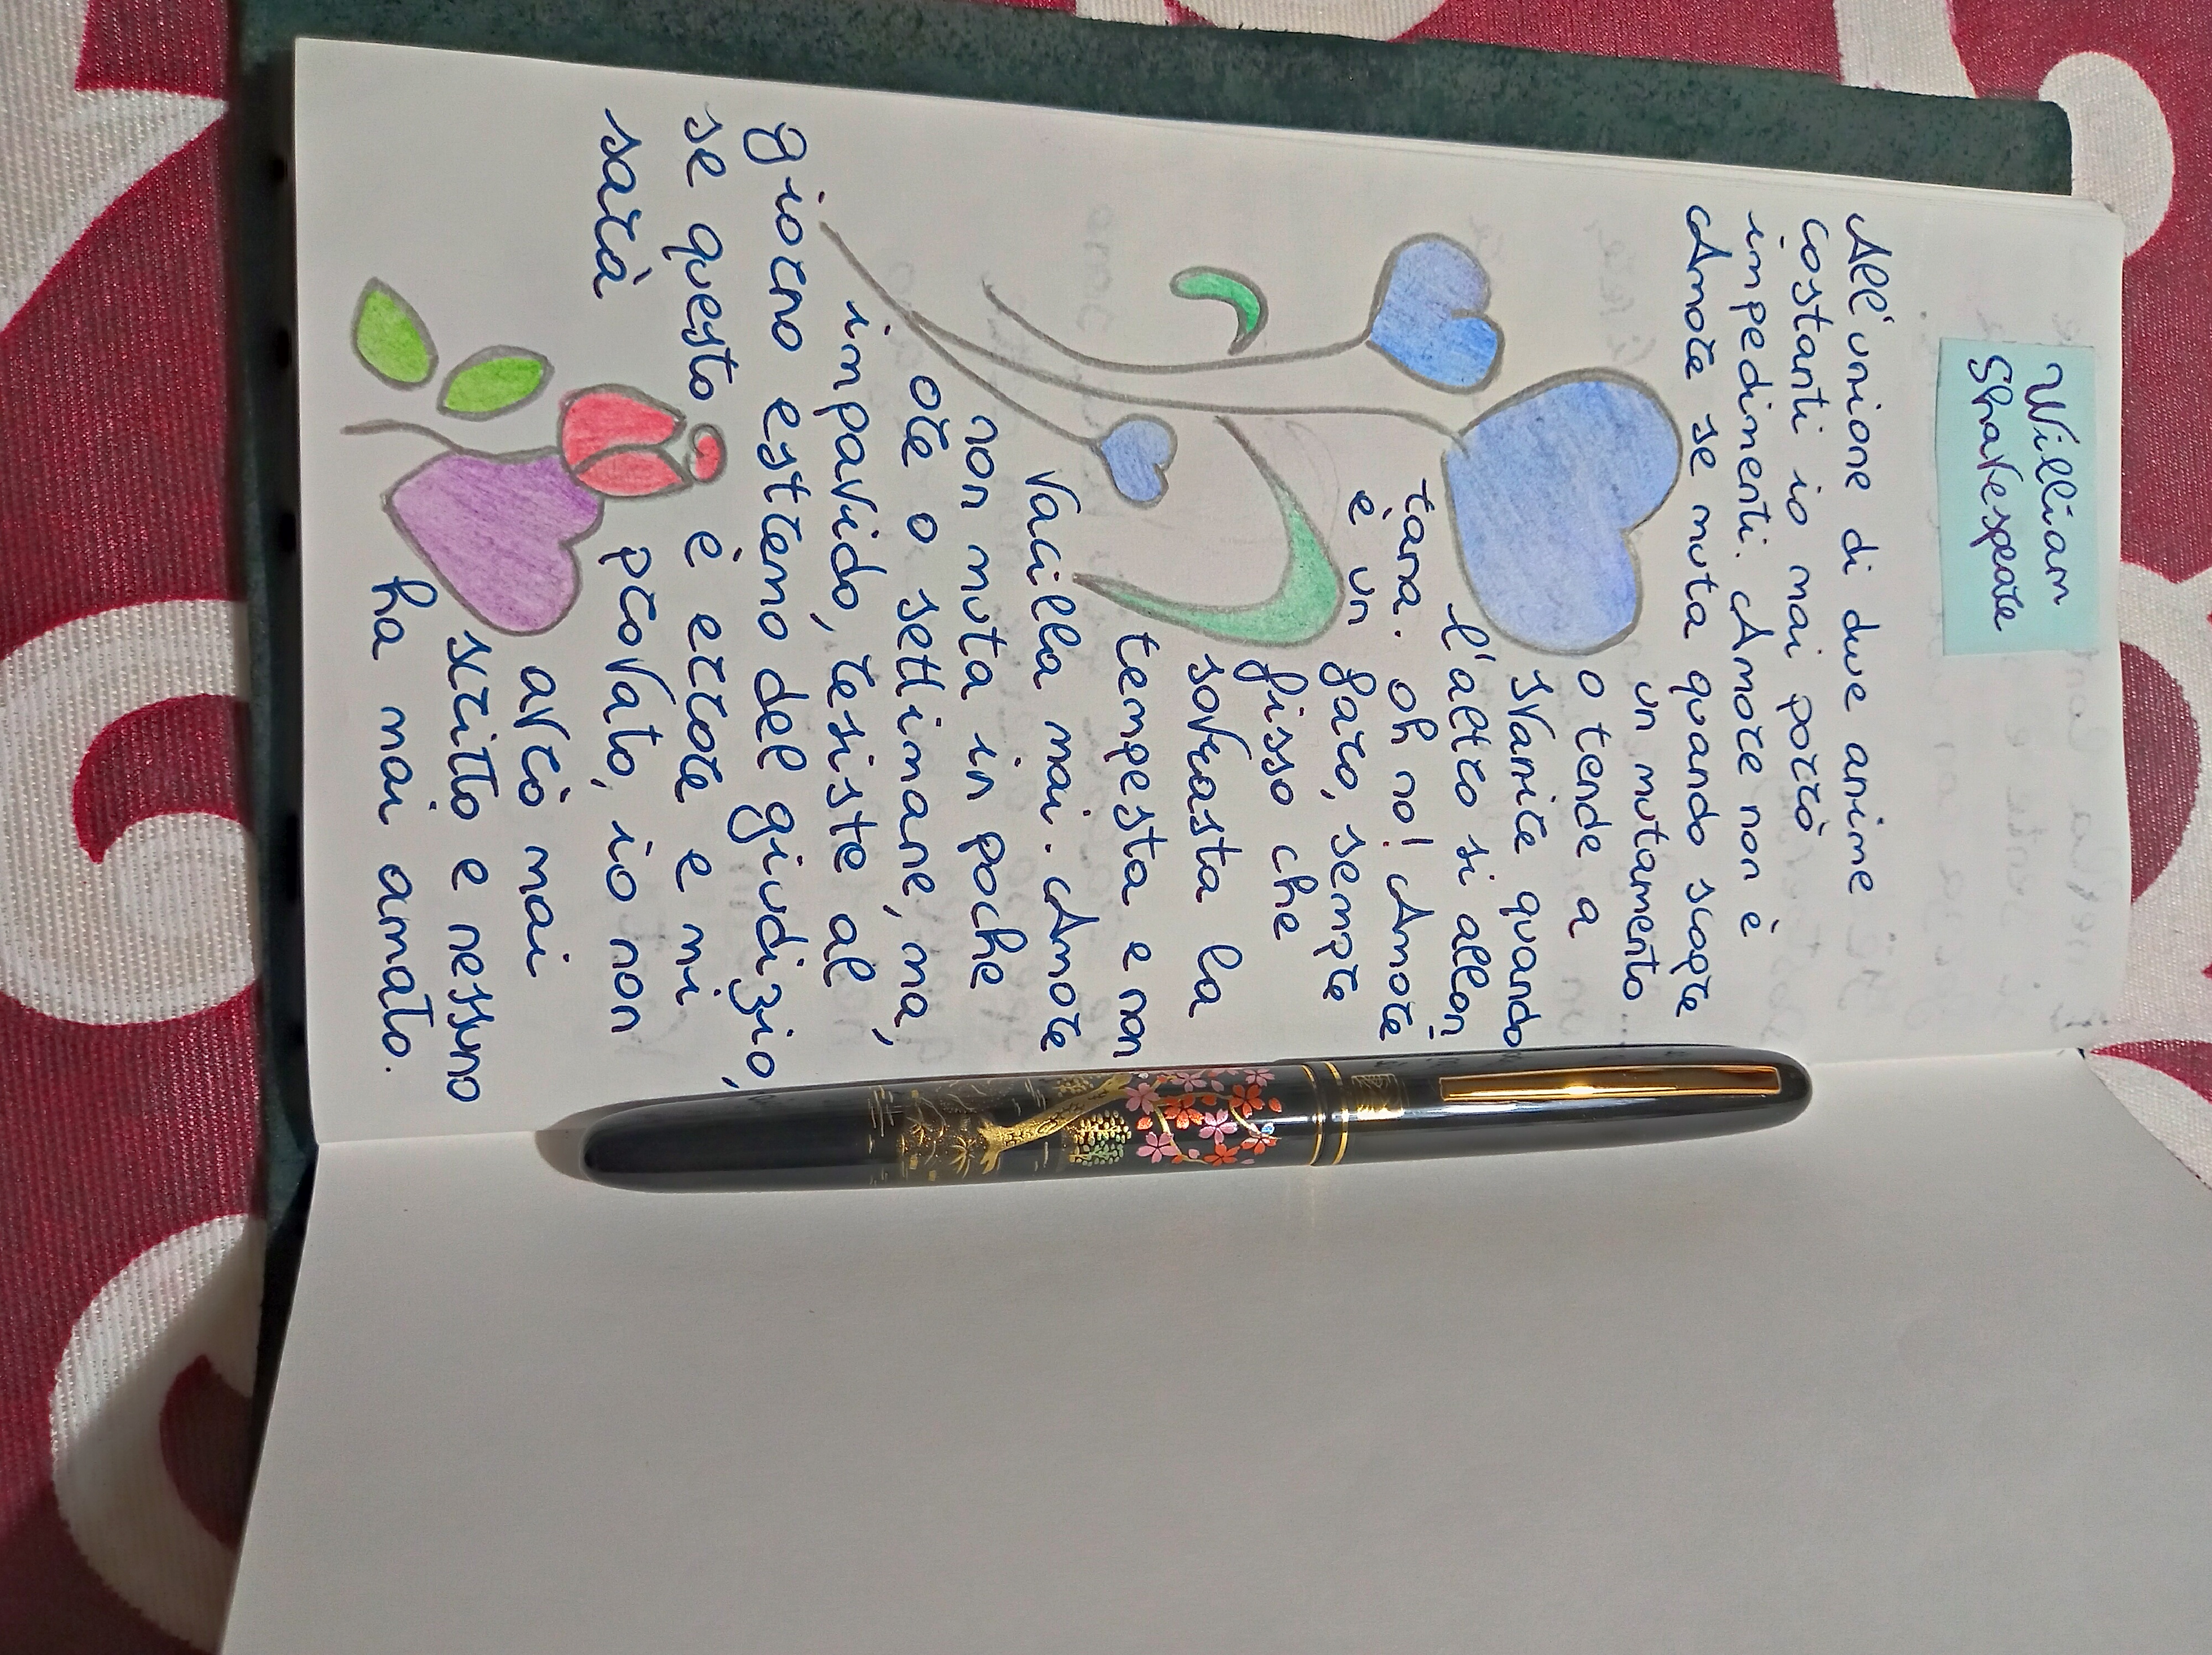 William
Shakespeare
All'unione di due anime
costanti io mai porrò
impedimenti. Amore non è
Amore se muta quando scopre
un mutamento
o tende a
svanire quando
l'altro si allon
tana. oh no! Amore
è un faro, sempre
fisso che
sovrasta la
tempesta e non
vacilla mai. Amore
non muta in poche
ore o settimane, ma,
impavido, resiste al
giorno estremo del giudizio,
se questo è errore e mi
sarà provato, io non
avrò mai
scritto e nessuno
ha mai amato.